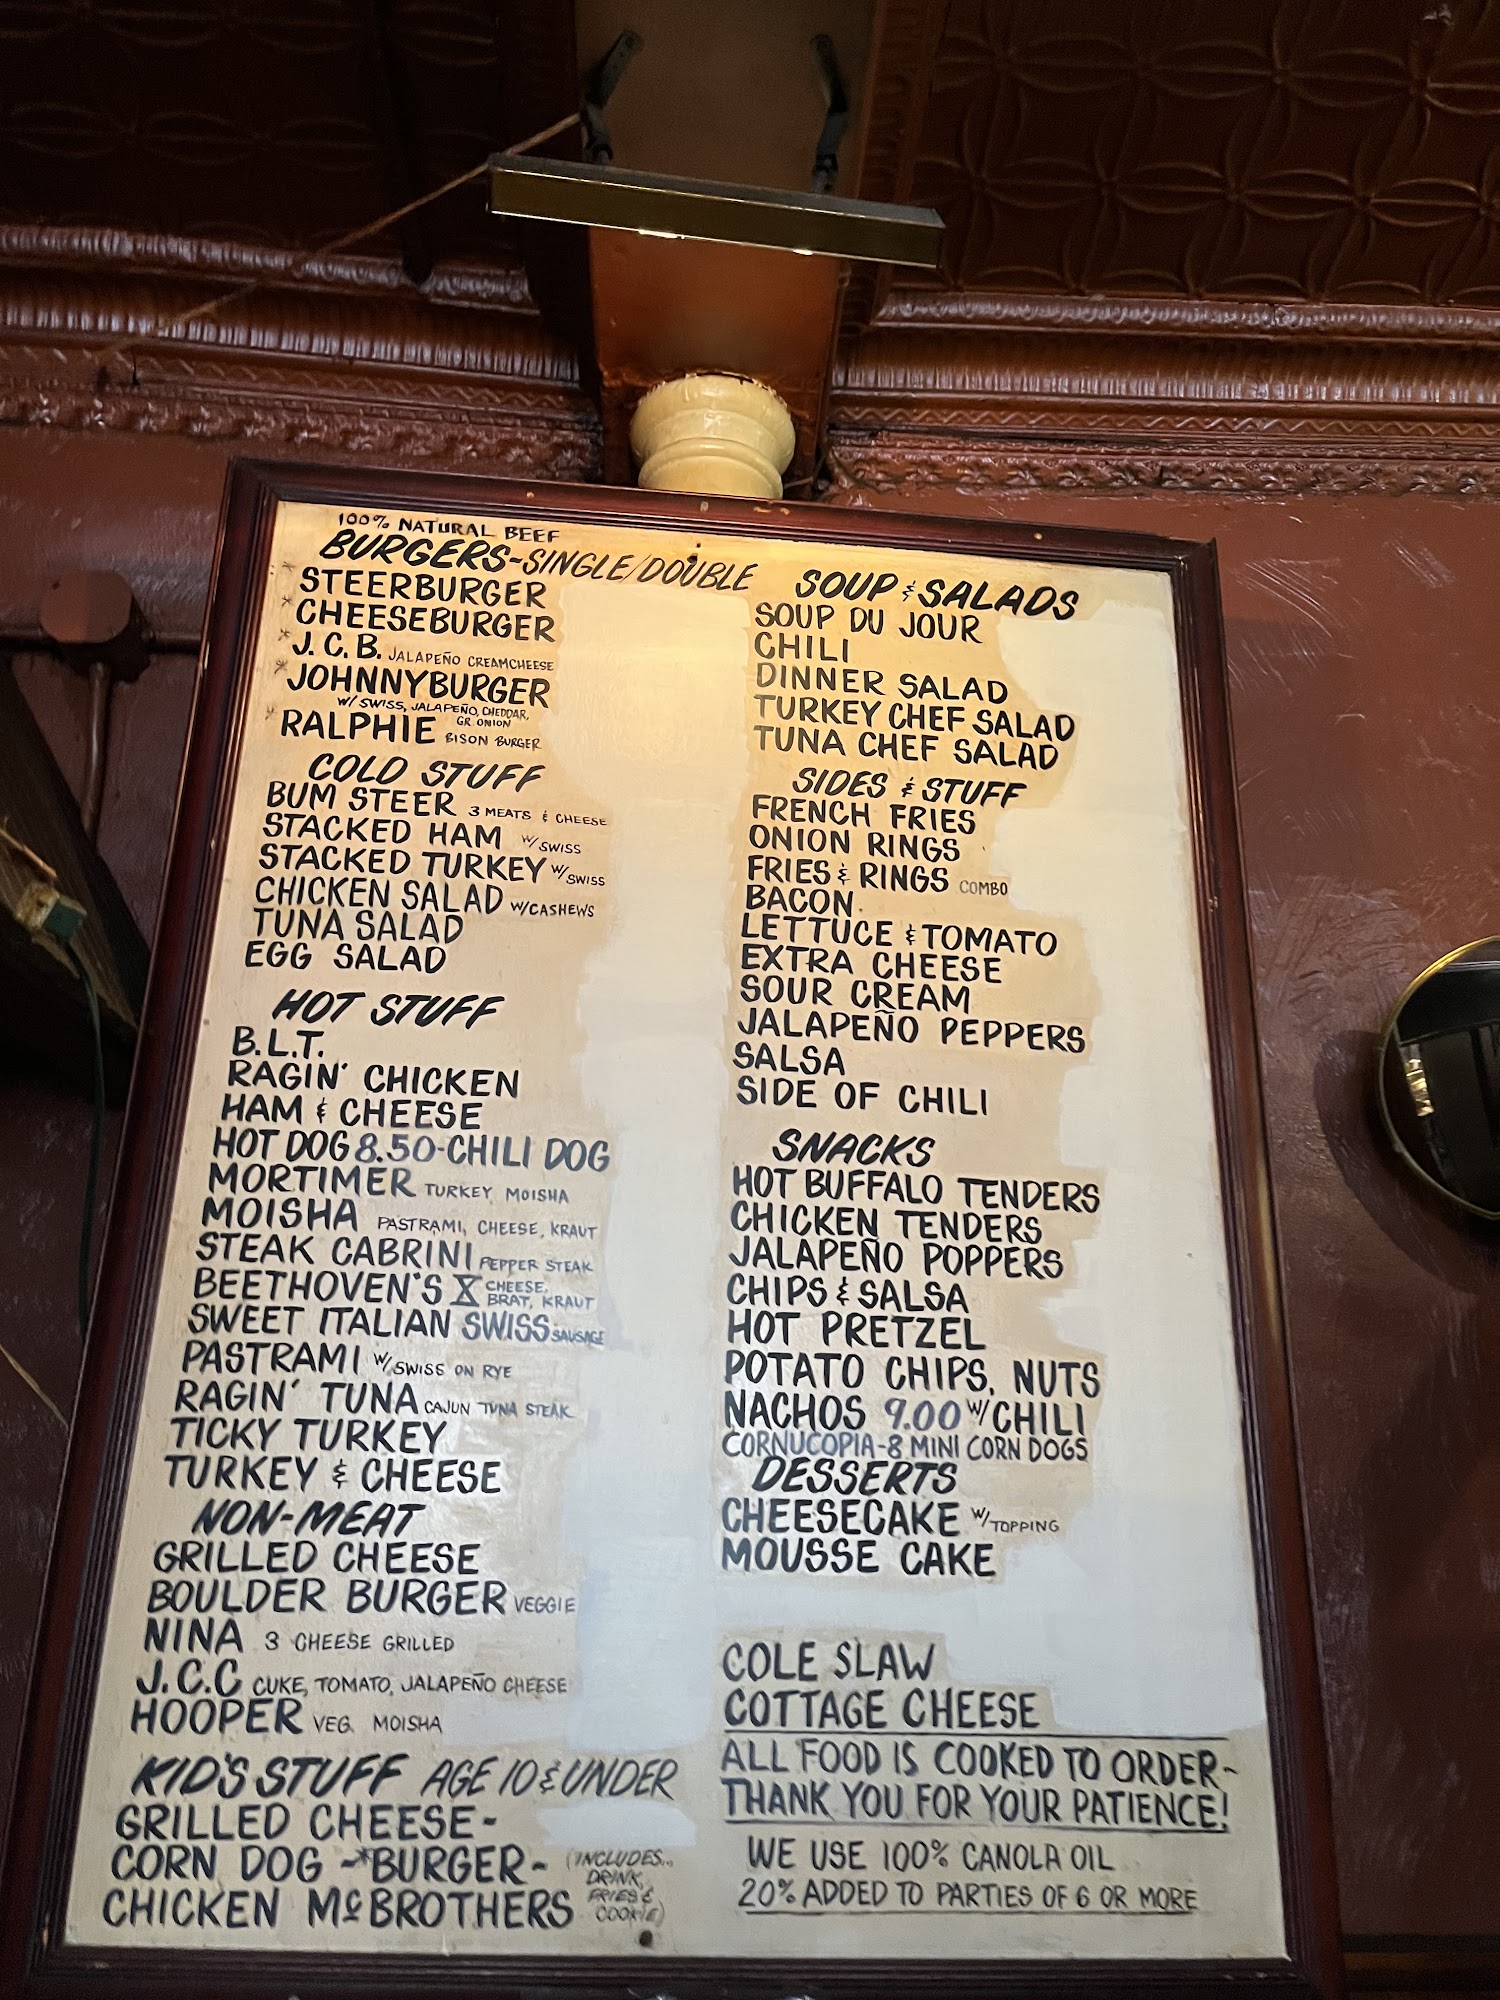 100% NATURAL BEEF
BURGERS-SINGLE/DOUBLE
* STEERBURGER
* CHEESEBURGER
* J.C.B. JALAPEÑO CREAMCHEESE
* JOHNNYBURGER
W/ SWISS, JALAPEÑO, CHEDDAR,
GR. ONION
* RALPHIE BISON BURGER
COLD STUFF
BUM STEER 3 MEATS & CHEESE
STACKED HAM W/SWISS
STACKED TURKEY W/SWISS
CHICKEN SALAD W/CASHEWS
TUNA SALAD
EGG SALAD
HOT STUFF
B.L.T.
RAGIN' CHICKEN
HAM & CHEESE
HOT DOG 8.50-CHILI DOG
MORTIMER TURKEY MOISHA
MOISHA PASTRAMI, CHEESE, KRAUT
STEAK CABRINI PEPPER STEAK
BEETHOVEN'S X CHEESE,
BRAT, KRAUT
SWEET ITALIAN SWISS SAUSAGE
PASTRAMI W/SWISS ON RYE
RAGIN' TUNA CAJUN TUNA STEAK
TICKY TURKEY
TURKEY & CHEESE
NON-MEAT
GRILLED CHEESE
BOULDER BURGER VEGGIE
NINA 3 CHEESE GRILLED
J.C.C CUKE, TOMATO, JALAPEÑO CHEESE
HOOPER VEG. MOISHA
KID'S STUFF AGE 10 & UNDER
GRILLED CHEESE-
CORN DOG -*BURGER-
CHICKEN McBROTHERS
(INCLUDES..
DRINK,
FRIES &
COOKIE)
SOUP & SALADS
SOUP DU JOUR
CHILI
DINNER SALAD
TURKEY CHEF SALAD
TUNA CHEF SALAD
SIDES & STUFF
FRENCH FRIES
ONION RINGS
FRIES & RINGS COMBO
BACON
LETTUCE & TOMATO
EXTRA CHEESE
SOUR CREAM
JALAPEÑO PEPPERS
SALSA
SIDE OF CHILI
SNACKS
HOT BUFFALO TENDERS
CHICKEN TENDERS
JALAPEÑO POPPERS
CHIPS & SALSA
HOT PRETZEL
POTATO CHIPS, NUTS
NACHOS 9.00 W/CHILI
CORNUCOPIA-8 MINI CORN DOGS
DESSERTS
CHEESECAKE W/TOPPING
MOUSSE CAKE
COLE SLAW
COTTAGE CHEESE
ALL FOOD IS COOKED TO ORDER-
THANK YOU FOR YOUR PATIENCE!
WE USE 100% CANOLA OIL
20% ADDED TO PARTIES OF 6 OR MORE